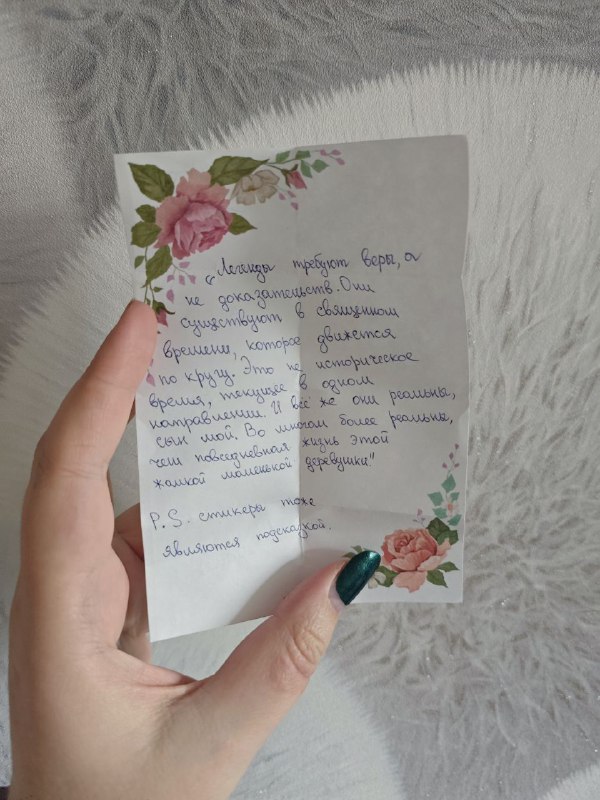 „Легенды требуют веры, а
не доказательств. Они
существуют в священном
времени, которое движется
по кругу. Это не историческое
время, текущее в одном
направлении. И всё же они реальны,
сын мой. Во многом более реальны,
чем повседневная жизнь этой
жалкой маленькой деревушки."
P.S. стикеры тоже
являются подсказкой.